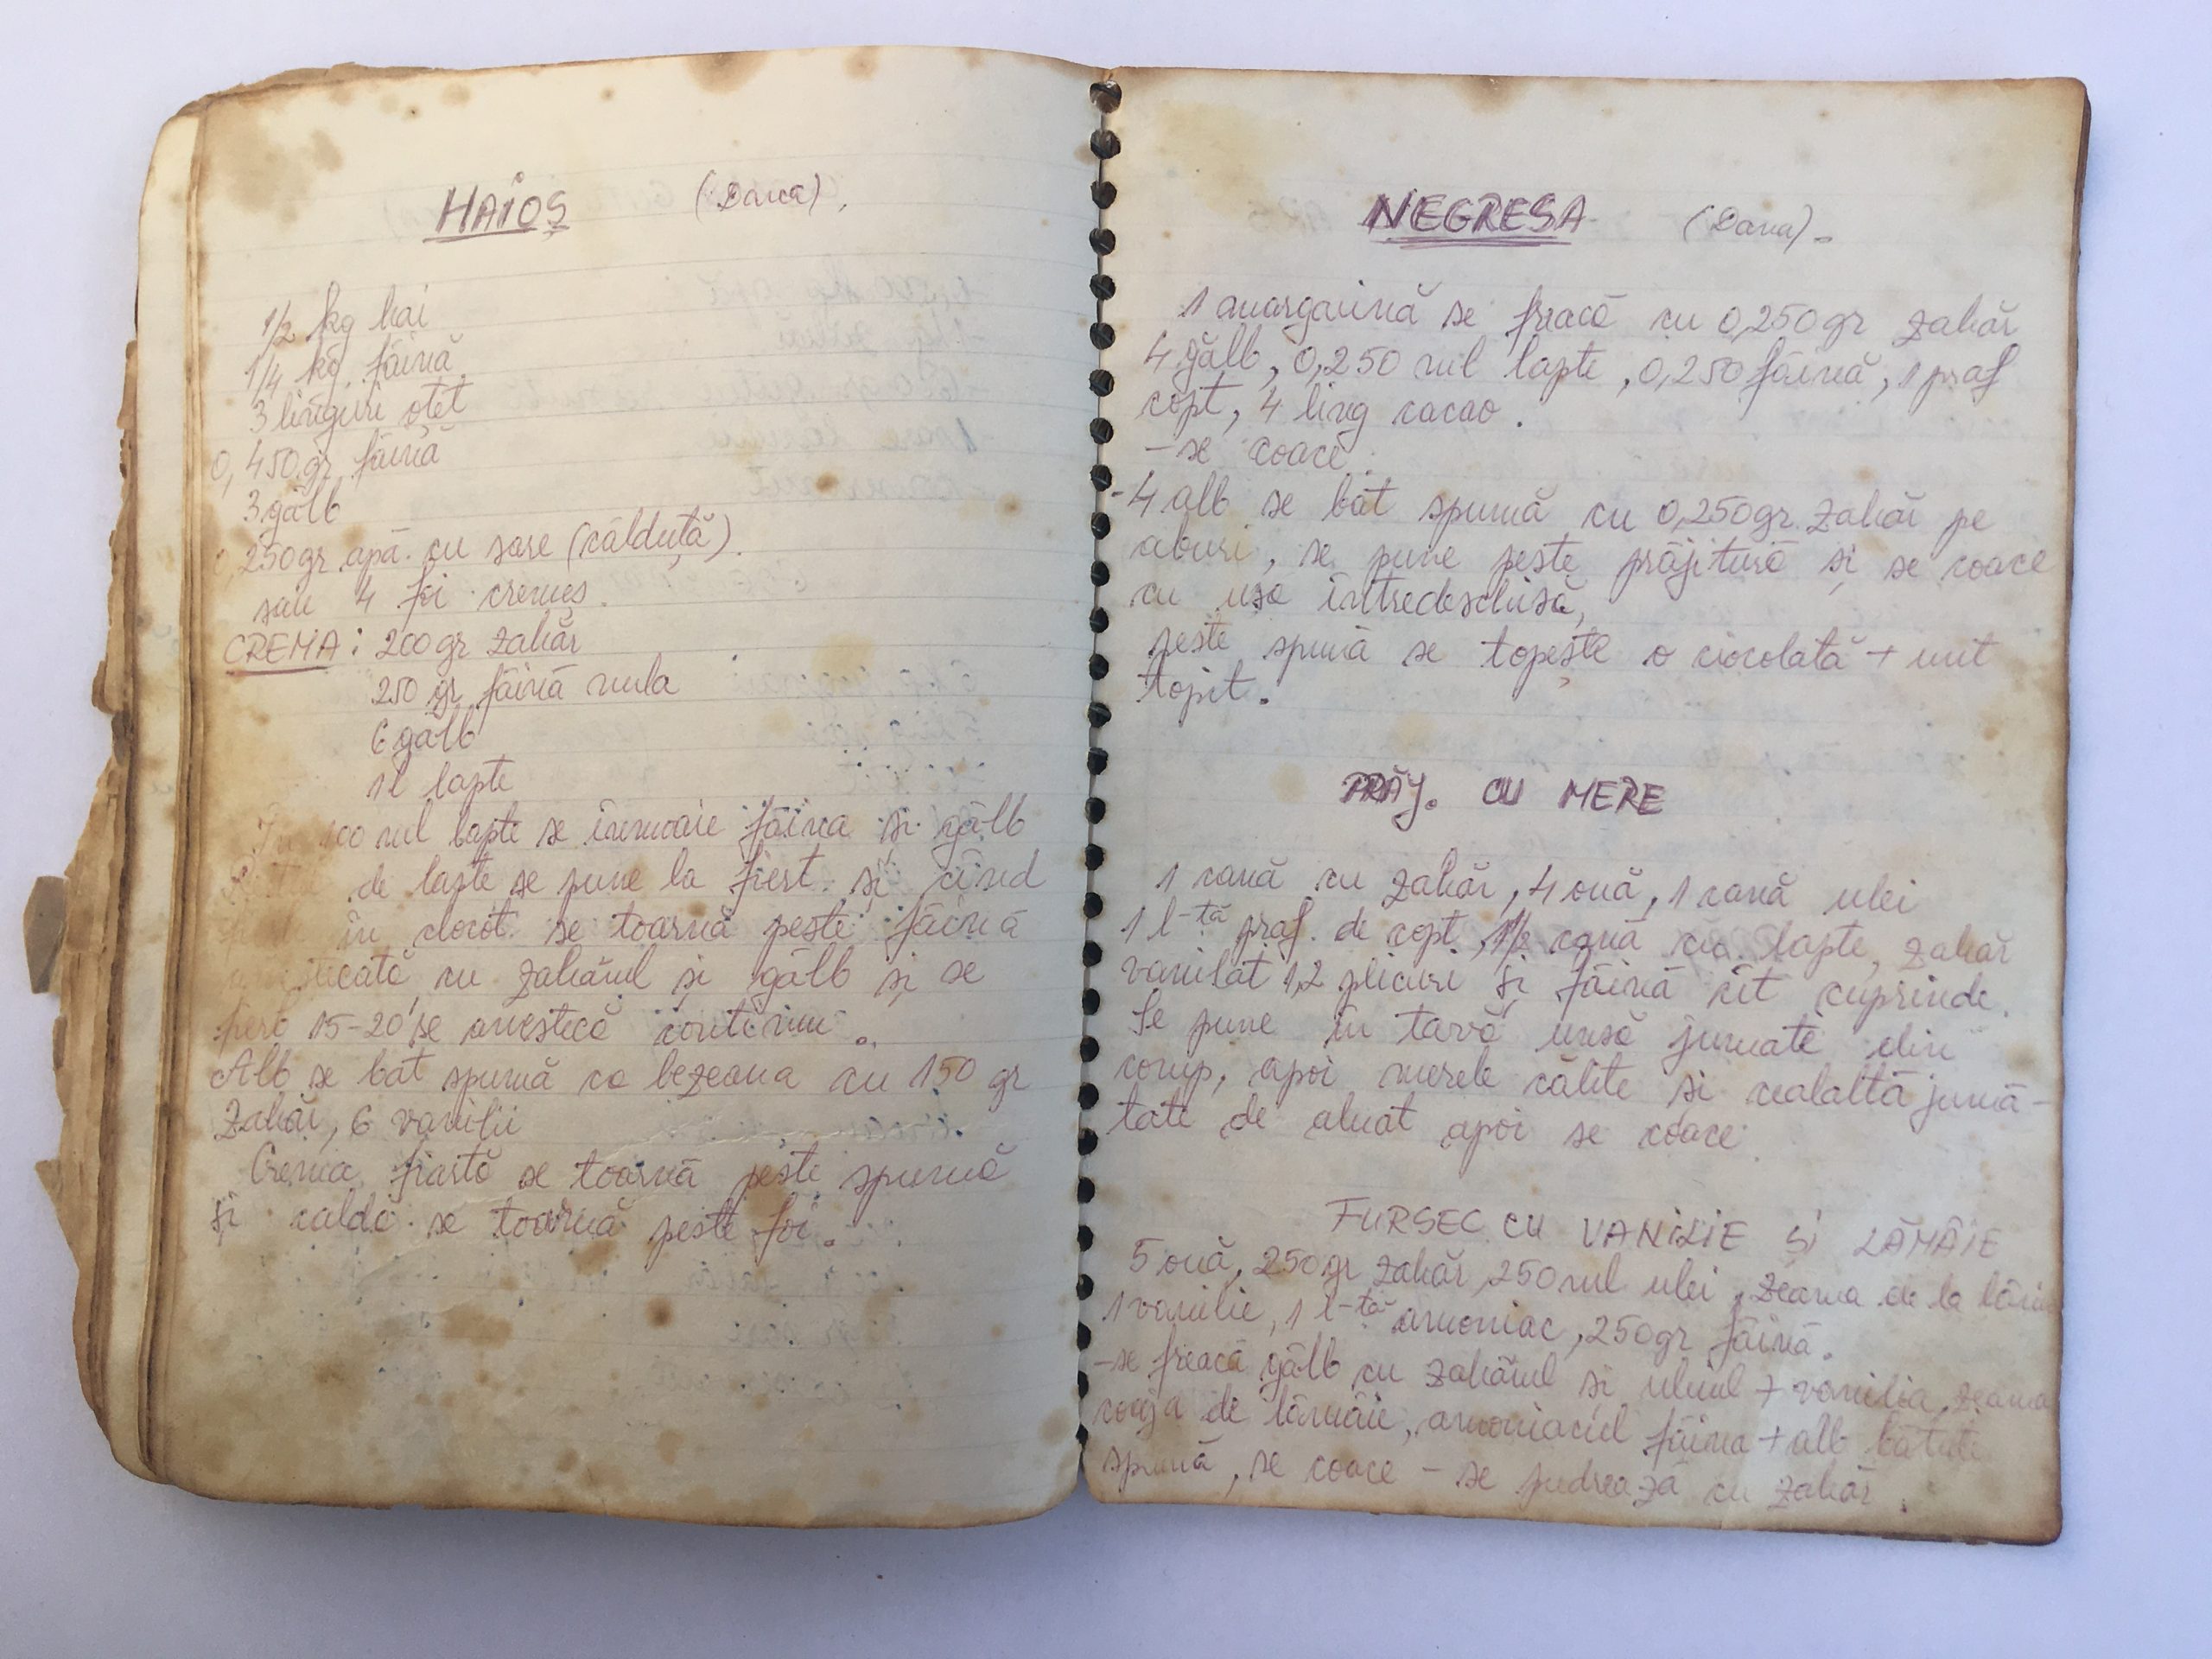 HAIOȘ (Dana).
1/2 kg hai
1/4 kg. făină
3 linguri oțet
0,450 gr făină
3 gălb
0,250gr apă cu sare (călduță).
sau 4 foi cremeș.
CREMA: 200gr zahăr
250 gr făină nula
6 gălb
1l lapte
În 100 ml lapte se înmoaie făina și gălb
de lapte se pune la fiert și cînd
în clocot se toarnă peste făină
amestecată cu zahărul și gălb și se
fierb 15-20' se amestecă continuu.
Alb se bat spumă ca bezeaua cu 150 gr
zahăr, 6 vanilii
Crema fiartă se toarnă peste spumă
și caldă se toarnă peste foi.
NEGRESA (Dana).
1 margarină se freacă cu 0,250gr zahăr
4 gălb, 0,250 ml lapte, 0,250 făină, 1 praf
copt, 4 ling cacao.
- se coace.
- 4 alb se bat spumă cu 0,250gr. zahăr pe
aburi, se pune peste prăjitură și se coace
cu ușa întredeschisă,
peste spumă se topește o ciocolată + unt
topit.
PRĂJ. CU MERE
1 cană cu zahăr, 4 ouă, 1 cană ulei
1 l-tă praf. de copt, 1/2 cană cu lapte, zahăr
vanilat 1,2 plicuri și făină cît cuprinde.
Se pune în tavă unsă jumate din
comp, apoi merele călite și cealaltă jumă-
tate de aluat apoi se coace.
FURSEC CU VANILIE ȘI LĂMÂIE
5 ouă, 250gr zahăr, 250 ml ulei, zeama de la lăm
1 vanilie, 1 l-tă amoniac, 250gr făină.
- se freacă gălb cu zahărul și uleiul + vanilia, zeama
coaja de lămâie, amoniacul făina + alb bătute
spumă, se coace - se pudrează cu zahăr.